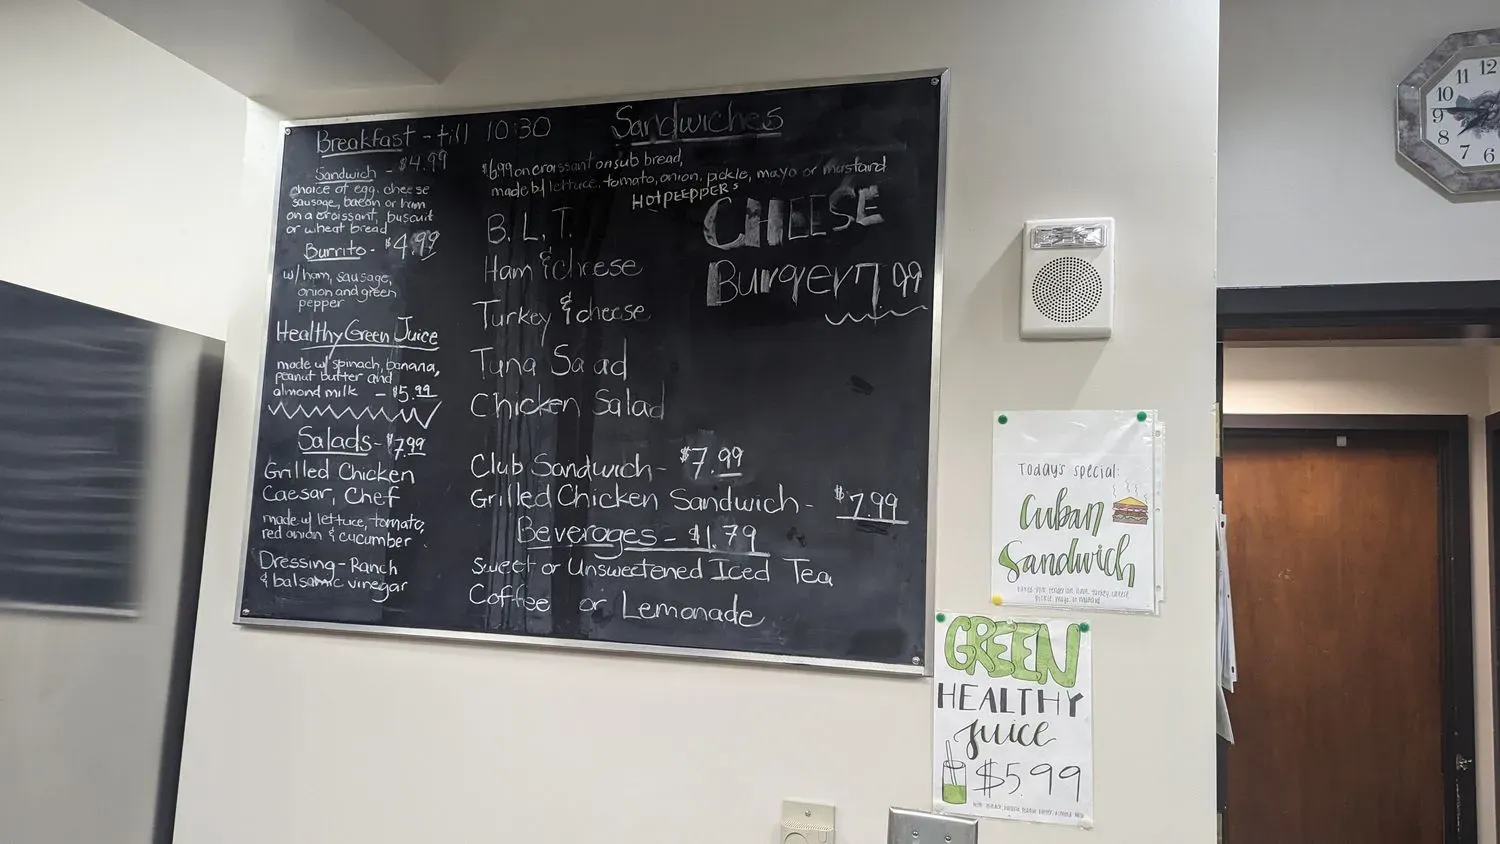 Breakfast - till 10:30
Sandwich - $4.99
choice of egg, cheese
sausage, bacon or ham
on a croissant, buscuit
or wheat bread
Burrito - $4.99
w/ ham, sausage,
onion and green
pepper
Healthy Green Juice
made w/ spinach, banana,
peanut butter and
almond milk - $5.99
Salads - $7.99
Grilled Chicken
Caesar, Chef
made w/ lettuce, tomato,
red onion & cucumber
Dressing - Ranch
& balsamic vinegar
Sandwiches
$6.99 on croissant on sub bread,
made w/ lettuce, tomato, onion, pickle, mayo or mustard
HOTPEEPPERs
B. L. T.
Ham & cheese
Turkey & cheese
Tuna Sa ad
Chicken Salad
CHEESE
Burger 7.99
Club Sandwich - $7.99
Grilled Chicken Sandwich - $7.99
Beverages - $1.79
Sweet or Unsweetened Iced Tea
Coffee or Lemonade
11 12
10
9
8
7 6
Today's special:
Cuban
Sandwich
ham, turkey, cheese,
pickle, mayo, or mustard
GREEN
HEALTHY
juice
$5.99